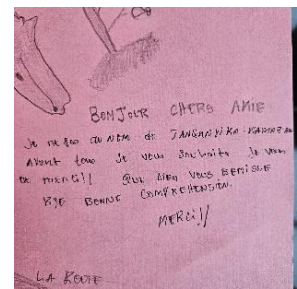 BONJOUR CHERS AMIE
Je AU NOM de TANGANYIKA
AVANT tous Je vous Souhaite Je vous
merci!! QUE DIEU VOUS BENISSE
BYE BONNE COMPREHENSION.
MERCI!!
LA ROUTE